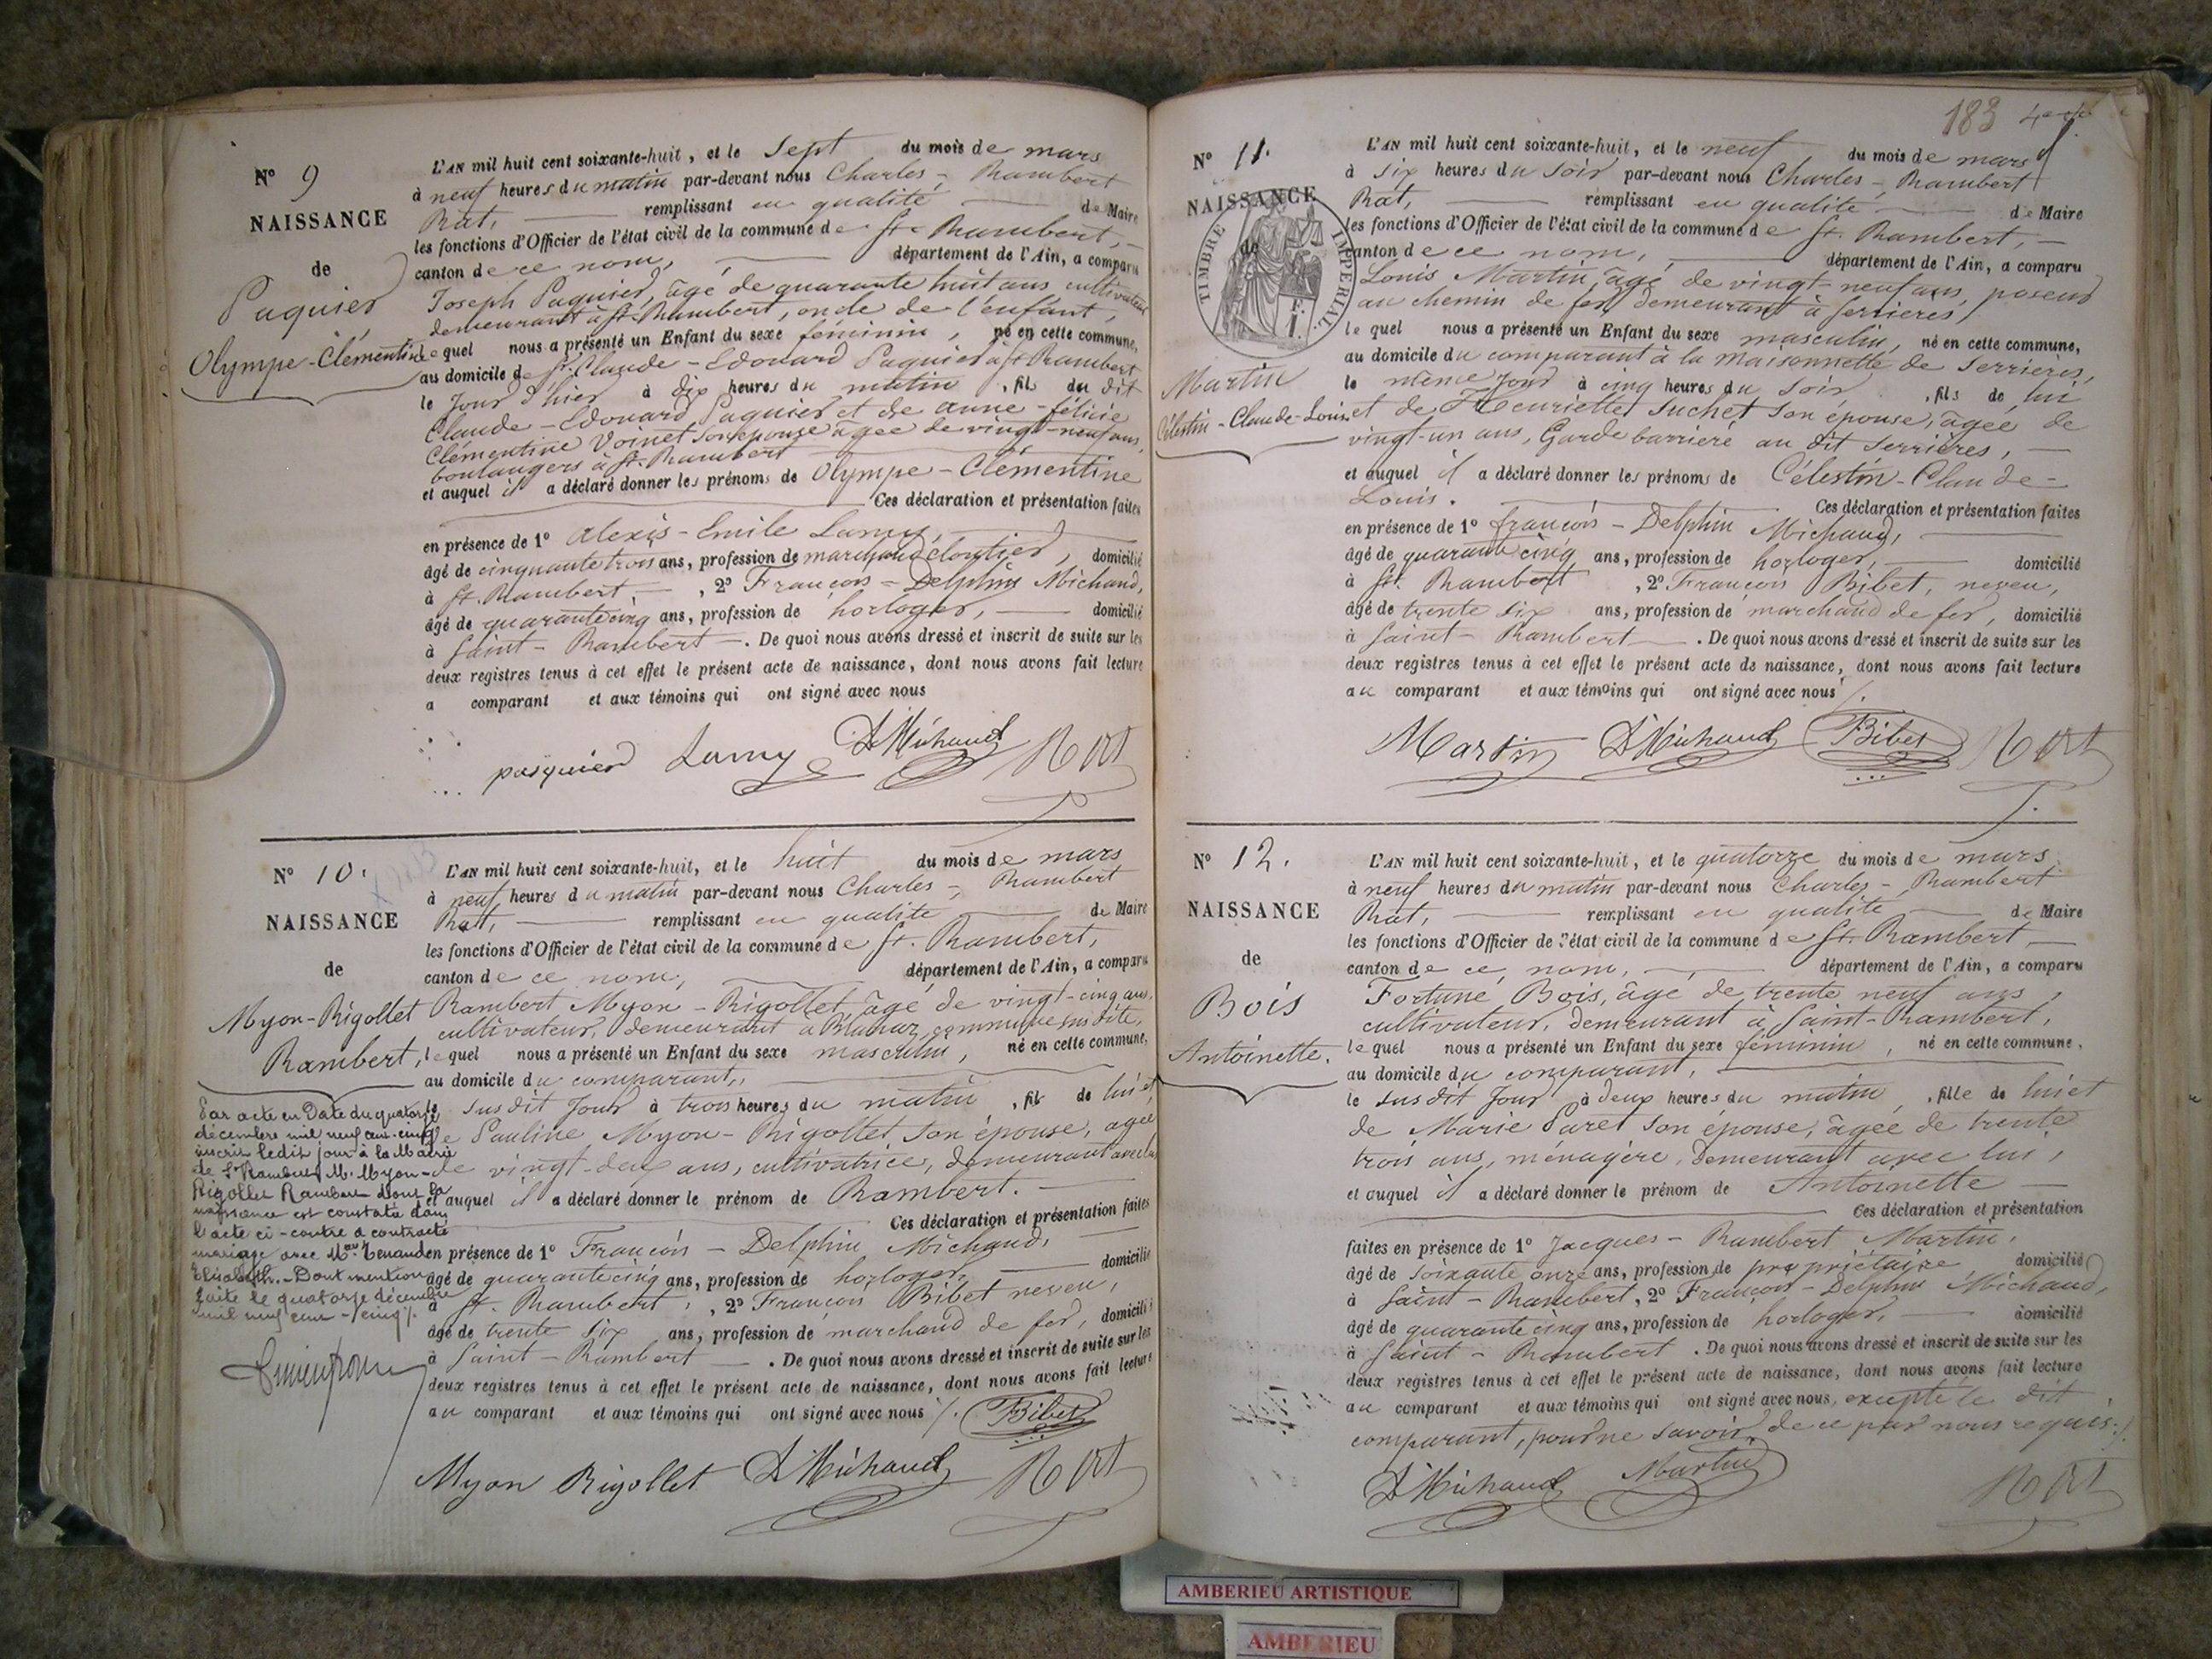 N° 9
NAISSANCE
de
Paquier
Olympe-Clémentine
L'AN mil huit cent soixante-huit, et le sept du mois de mars
à neuf heures du matin par-devant nous Charles-Rambert
Rat, remplissant en qualité de Maire
les fonctions d'Officier de l'état civil de la commune de St. Rambert,
canton de ce nom, département de l'Ain, a comparu
Joseph Paquier, âgé de quarante huit ans cultivateur
demeurant à St. Rambert, oncle de l'enfant,
lequel nous a présenté un Enfant du sexe féminin, né en cette commune,
au domicile de Sr. Claude-Edouard Paquier à St Rambert
le jour d'hier à dix heures du matin, fils du dit
Claude-Edouard Paquier et de anne-félicie
Clémentine Voinet son épouse âgée de vingt-neuf ans,
boulangers à St. Rambert
et auquel il a déclaré donner les prénoms de Olympe-Clémentine
Ces déclaration et présentation faites
en présence de 1° Alexis-Emile Lamy,
âgé de cinquante trois ans, profession de marchand cloutier, domicilié
à St. Rambert, 2° François-Delphin Michaud,
âgé de quarante cinq ans, profession de horloger, domicilié
à Saint-Rambert. De quoi nous avons dressé et inscrit de suite sur les
deux registres tenus à cet effet le présent acte de naissance, dont nous avons fait lecture
a comparant et aux témoins qui ont signé avec nous
pasquier Lamy D Michaud Rat
N° 10.
NAISSANCE
de
Myon-Rigollet
Rambert,
L'AN mil huit cent soixante-huit, et le huit du mois de mars
à neuf heures du matin par-devant nous Charles-Rambert
Rat, remplissant en qualité de Maire
les fonctions d'Officier de l'état civil de la commune de St. Rambert,
canton de ce nom, département de l'Ain, a comparu
Rambert Myon-Rigollet âgé de vingt-cinq ans,
cultivateur, demeurant à Blanaz, commune susdite,
lequel nous a présenté un Enfant du sexe masculin, né en cette commune,
au domicile du comparant,
le susdit jour à trois heures du matin, fils de lui et
de Pauline Myon-Rigollet son épouse, agée
de vingt-deux ans, cultivatrice, demeurant avec lui
et auquel il a déclaré donner le prénom de Rambert.
Ces déclaration et présentation faites
en présence de 1° François-Delphin Michaud,
âgé de quarante cinq ans, profession de horloger, domicilié
à St. Rambert, 2° François Bibet neveu,
âgé de trente six ans, profession de marchand de fer, domicilié
à Saint-Rambert. De quoi nous avons dressé et inscrit de suite sur les
deux registres tenus à cet effet le présent acte de naissance, dont nous avons fait lecture
au comparant et aux témoins qui ont signé avec nous /. Bibet
Myon Rigollet D Michaud Rat
Par acte en Date du quatorze
décembre mil neuf cent-cinq
inscrit ledit jour à la Mairie
de St Rambert M. Myon-
Rigollet Rambert dont la
naissance est constatée dans
l'acte ci-contre a contracté
mariage avec
Elisabeth. - Dont mention
faite le quatorze décembre
mil neuf cent-cinq /.
183
N° 11.
NAISSANCE
de
TIMBRE IMPÉRIAL
Martin
Célestin-Claude-Louis
L'AN mil huit cent soixante-huit, et le neuf du mois de mars
à six heures du soir par-devant nous Charles-Rambert
Rat, remplissant en qualité de Maire
les fonctions d'Officier de l'état civil de la commune de St. Rambert,
canton de ce nom, département de l'Ain, a comparu
Louis Martin, âgé de vingt-neuf ans, poseur
au chemin de fer demeurant à Serrières,
lequel nous a présenté un Enfant du sexe masculin, né en cette commune,
au domicile du comparant à la maisonnette de Serrières,
le même jour à cinq heures du soir, fils de lui
et de Henriette Suchet son épouse, âgée de
vingt-un ans, Garde barrière au dit Serrières,
et auquel il a déclaré donner les prénoms de Célestin-Claude-
Louis. Ces déclaration et présentation faites
en présence de 1° françois-Delphin Michaud,
âgé de quarante cinq ans, profession de horloger, domicilié
à St. Rambert, 2° François Bibet, neveu,
âgé de trente six ans, profession de marchand de fer, domicilié
à Saint-Rambert. De quoi nous avons dressé et inscrit de suite sur les
deux registres tenus à cet effet le présent acte de naissance, dont nous avons fait lecture
au comparant et aux témoins qui ont signé avec nous /.
Martin D Michaud Bibet Rat
N° 12.
NAISSANCE
de
Bois
Antoinette.
L'AN mil huit cent soixante-huit, et le quatorze du mois de mars
à neuf heures du matin par-devant nous Charles-Rambert
Rat, remplissant en qualité de Maire
les fonctions d'Officier de l'état civil de la commune de St. Rambert,
canton de ce nom, département de l'Ain, a comparu
Fortuné Bois, âgé de trente neuf ans,
cultivateur, demeurant à Saint-Rambert,
lequel nous a présenté un Enfant du sexe féminin, né en cette commune,
au domicile du comparant,
le susdit jour à deux heures du matin, fille de lui et
de Marie Paret son épouse, âgée de trente
trois ans, ménagère, demeurant avec lui,
et auquel il a déclaré donner le prénom de Antoinette
Ces déclaration et présentation
faites en présence de 1° Jacques-Rambert Martin,
âgé de soixante onze ans, profession de propriétaire domicilié
à Saint-Rambert, 2° François-Delphin Michaud,
âgé de quarante cinq ans, profession de horloger, domicilié
à Saint-Rambert. De quoi nous avons dressé et inscrit de suite sur les
deux registres tenus à cet effet le présent acte de naissance, dont nous avons fait lecture
au comparant et aux témoins qui ont signé avec nous, excepté le dit
comparant, pour ne savoir, de ce par nous requis./.
D Michaud Martin Rat
AMBERIEU ARTISTIQUE
AMBERIEU